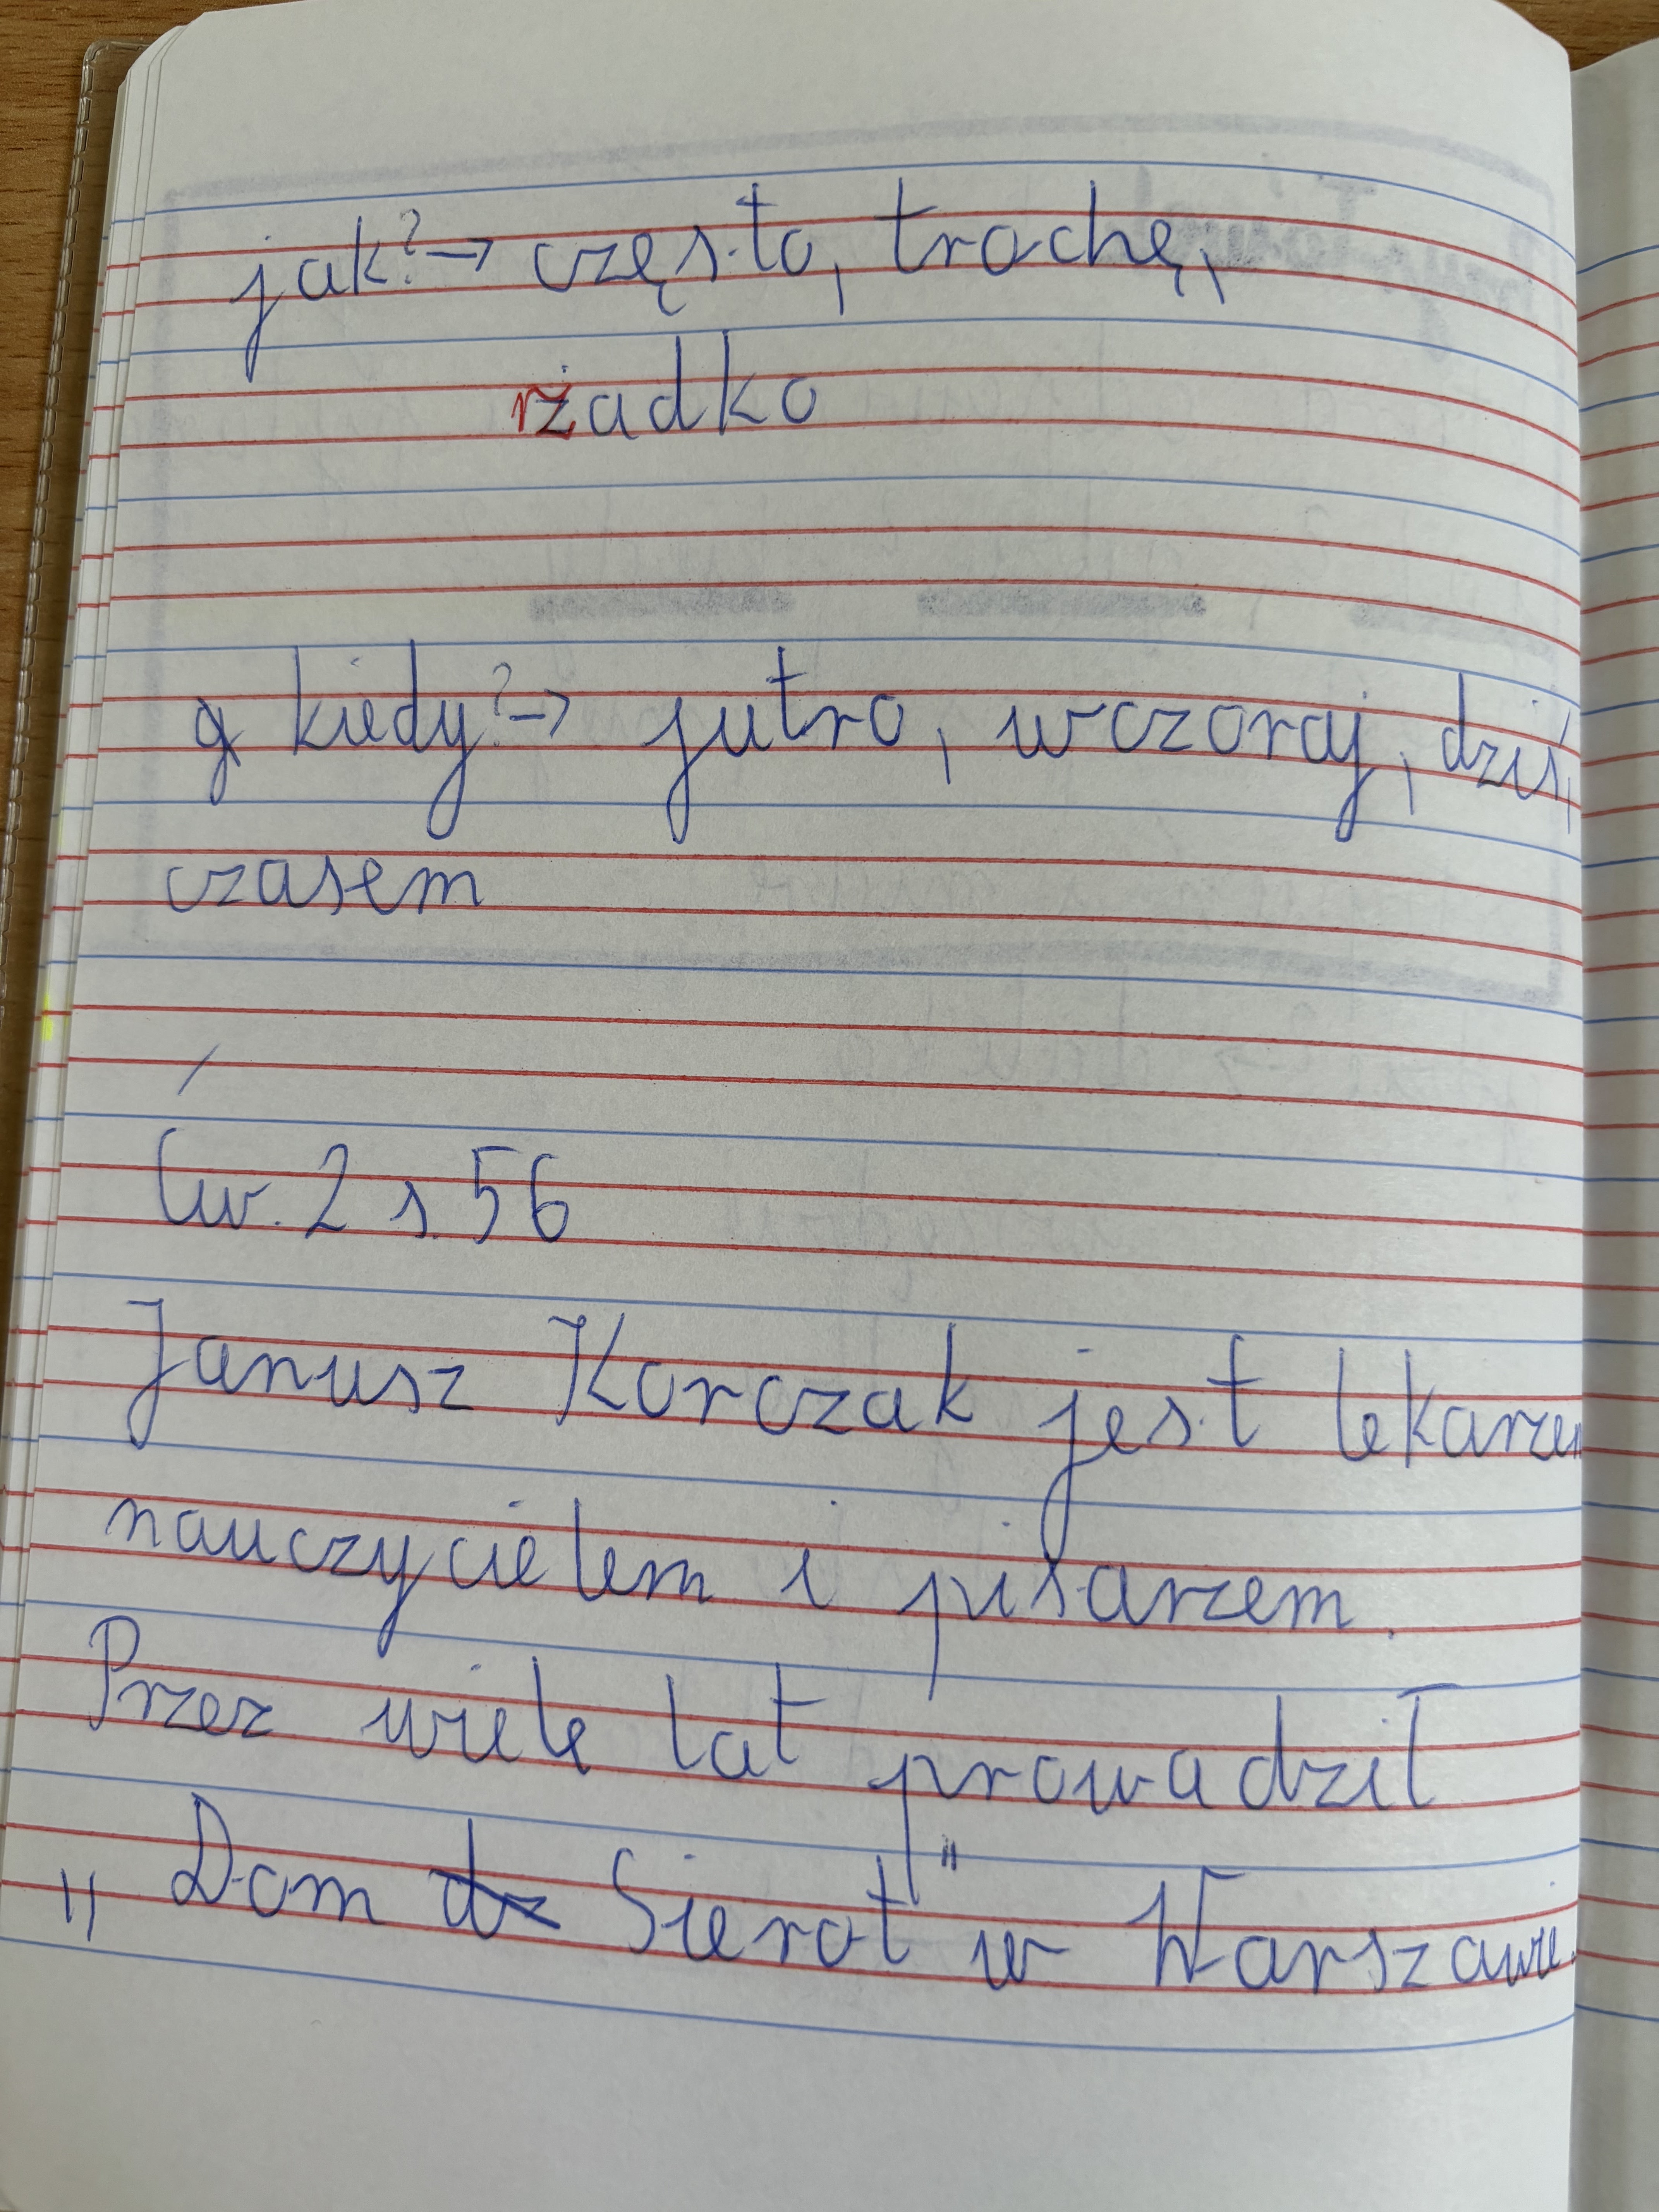 jak? → często, trochę,
rzadko
kiedy? → jutro, wczoraj, dziś,
czasem
Ćw. 2 s. 56
Janusz Korczak jest lekarzem
nauczycielem i pisarzem.
Przez wiele lat prowadził
„Dom Sierot" w Warszawie.